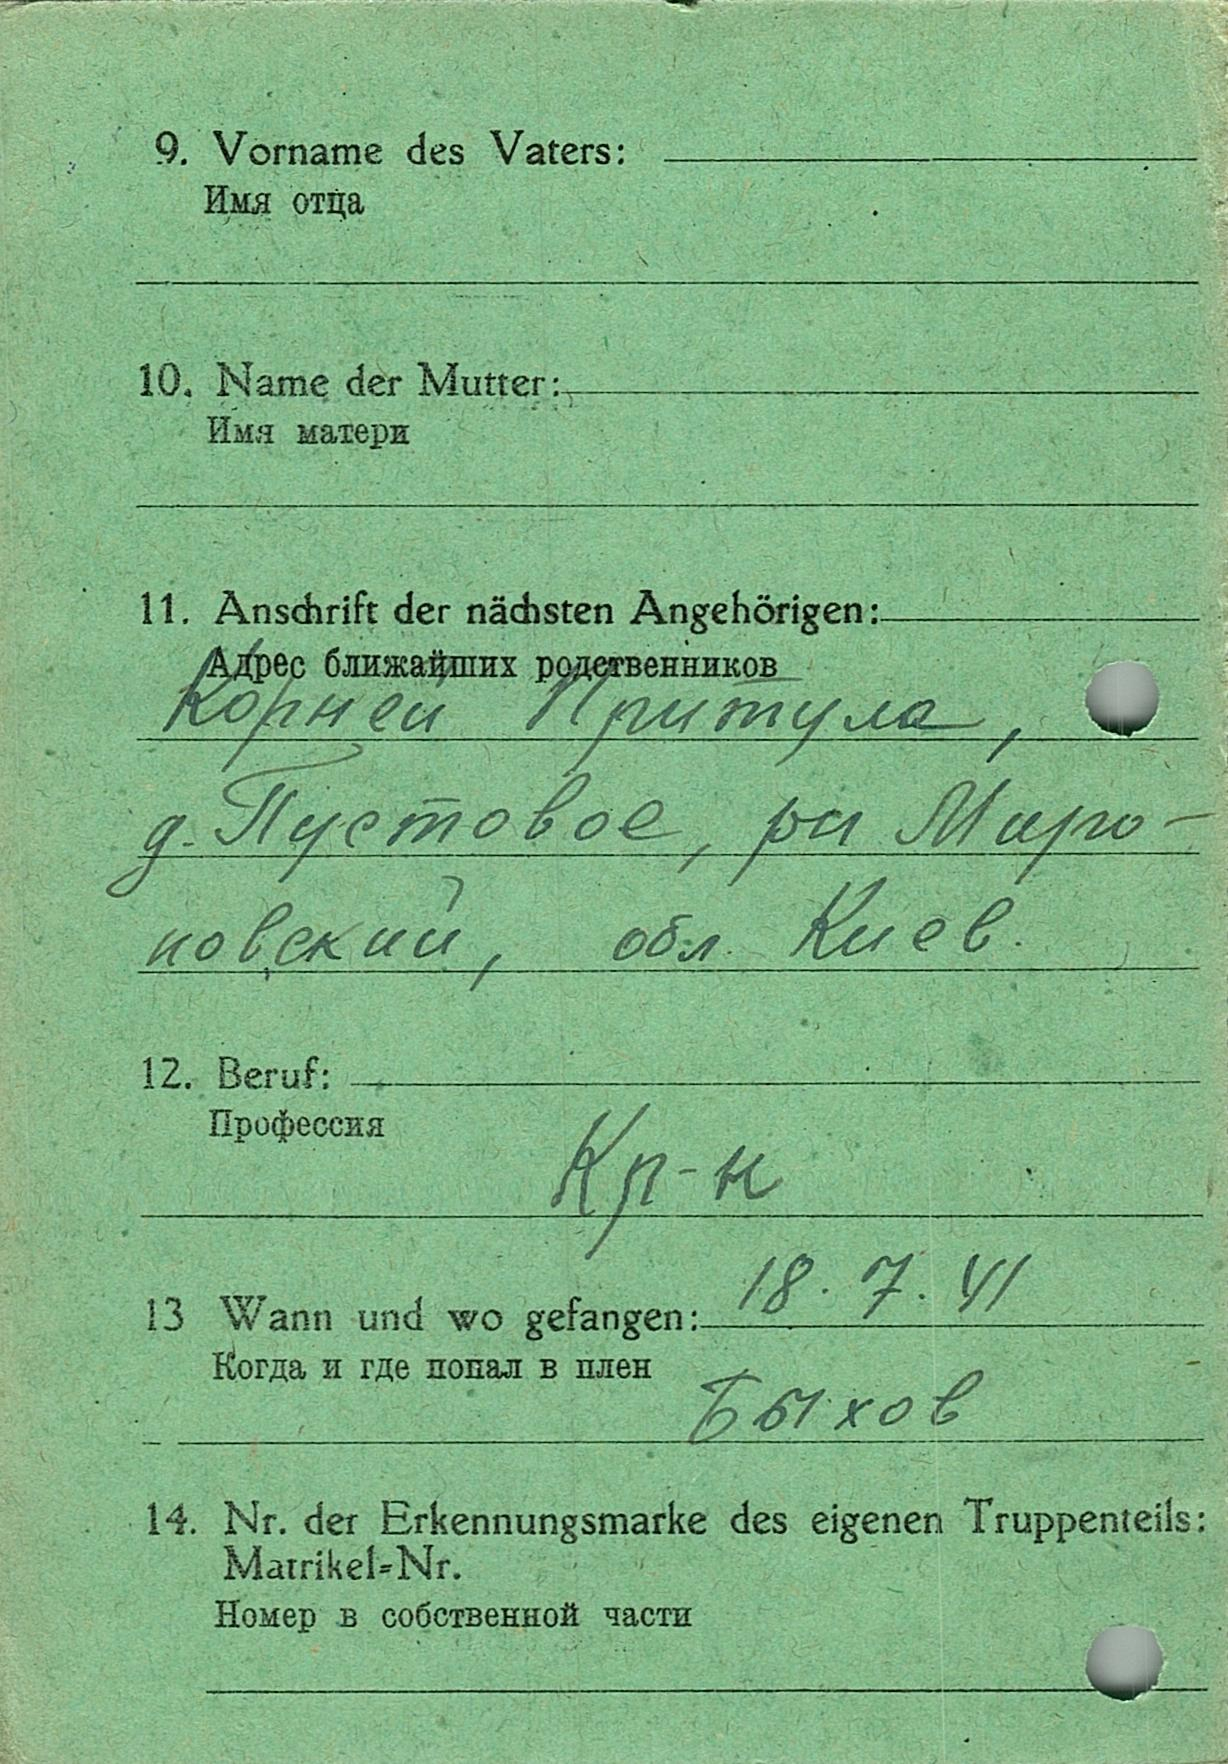 9. Vorname des Vaters:
Имя отца
10. Name der Mutter:
Имя матери
11. Anschrift der nächsten Angehörigen:
Адрес ближайших родственников
Корней Притула,
д. Пустовое, рн Миро-
новский, обл. Киев.
12. Beruf:
Профессия
Кр-н
18.7.41
13 Wann und wo gefangen:
Когда и где попал в плен
Быхов
14. Nr. der Erkennungsmarke des eigenen Truppenteils:
Matrikel=Nr.
Номер в собственной части